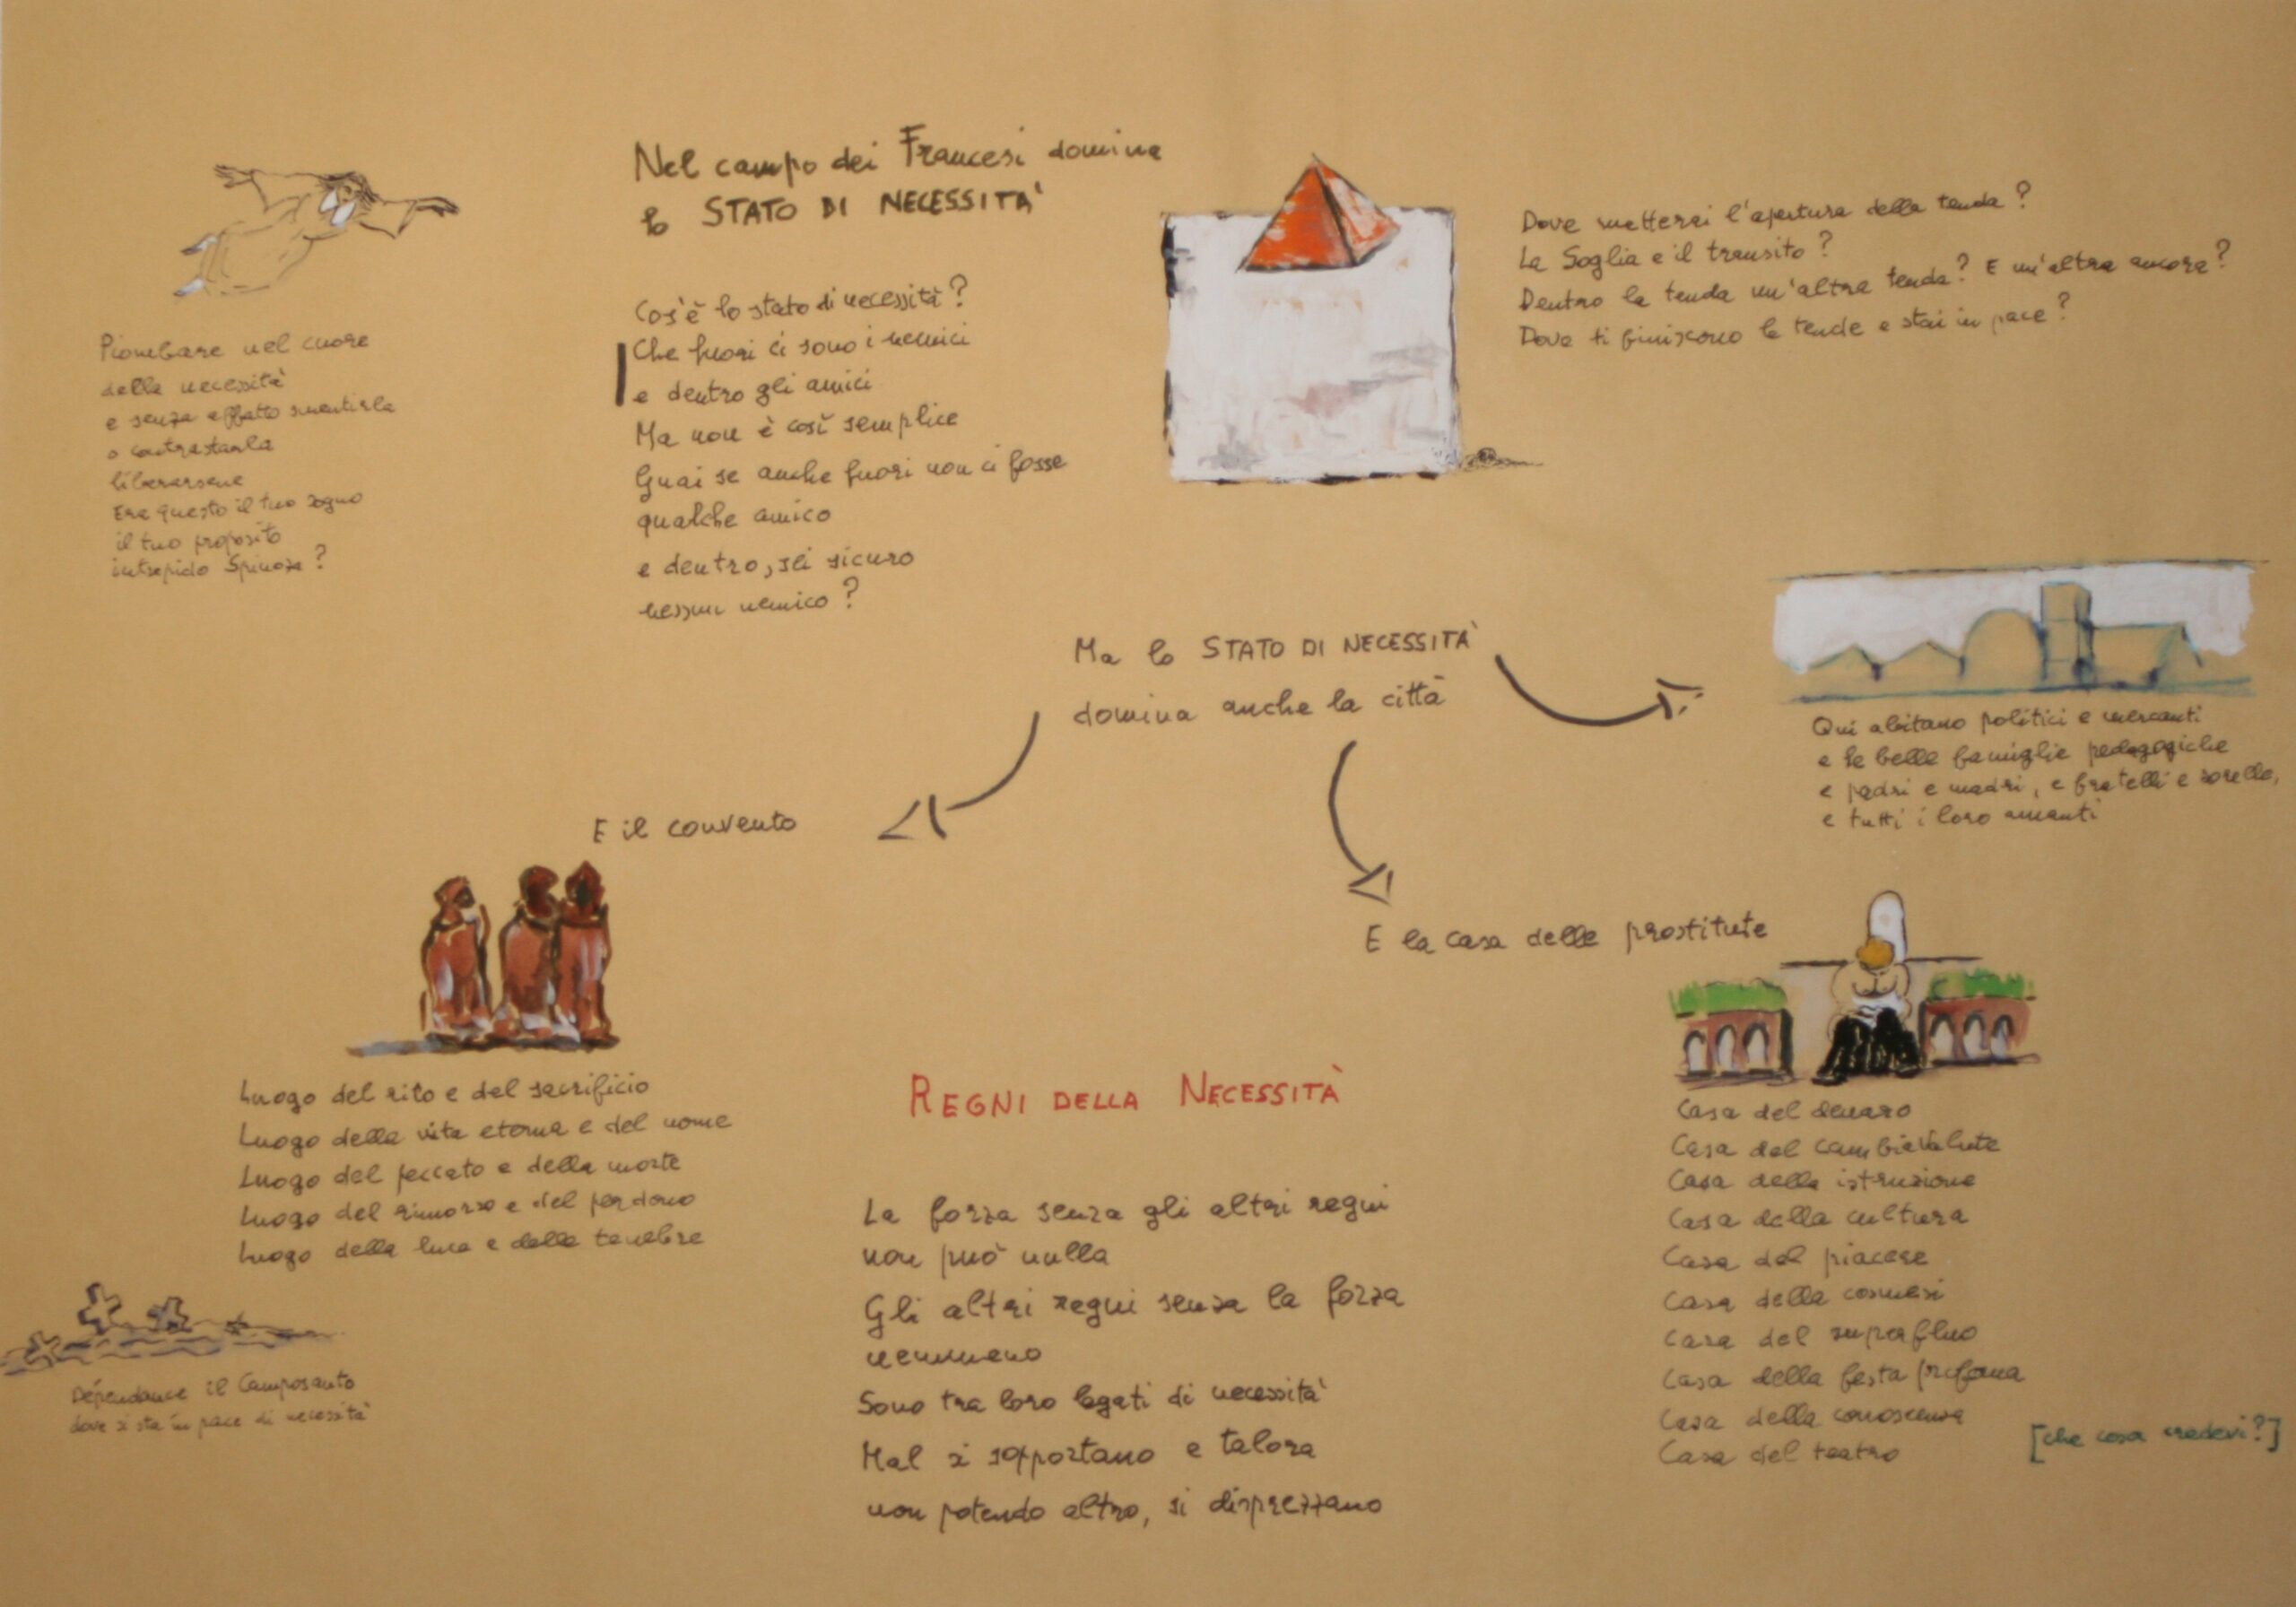 Nel campo dei Francesi domina
lo STATO DI NECESSITA'
Cos'è lo stato di necessità?
Che fuori ci sono i nemici
e dentro gli amici
Ma non è così semplice
Guai se anche fuori non ci fosse
qualche amico
e dentro, sei sicuro
nessun nemico?
Piombare nel cuore
della necessità
e senza affatto smentirla
o contrastarla
liberarsene
Era questo il tuo sogno
il tuo proposito
intrepido Spinoza?
Dove metterai l'apertura della tenda?
La Soglia e il transito?
Dentro la tenda un'altra tenda? E un'altra ancora?
Dove ti finiscono le tende e stai in pace?
Ma lo STATO DI NECESSITA'
domina anche la città
Qui abitano politici e mercanti
e le belle famiglie pedagogiche
e padri e madri, e fratelli e sorelle,
e tutti i loro amanti
E il convento
Luogo del rito e del sacrificio
Luogo della vita eterna e del nome
Luogo del peccato e della morte
Luogo del rimorso e del perdono
Luogo della luce e delle tenebre
Dépendance il Camposanto
dove si sta in pace di necessità
E la casa delle prostitute
Casa del denaro
Casa del cambiavalute
Casa della istruzione
Casa della cultura
Casa del piacere
Casa della cosmesi
Casa del superfluo
Casa della festa profana
Casa della conoscenza
Casa del teatro
[che cosa credevi?]
REGNI DELLA NECESSITÀ
La forza senza gli altri regni
non può nulla
Gli altri regni senza la forza
nemmeno
Sono tra loro legati di necessità
Mal si sopportano e talora
non potendo altro, si disprezzano